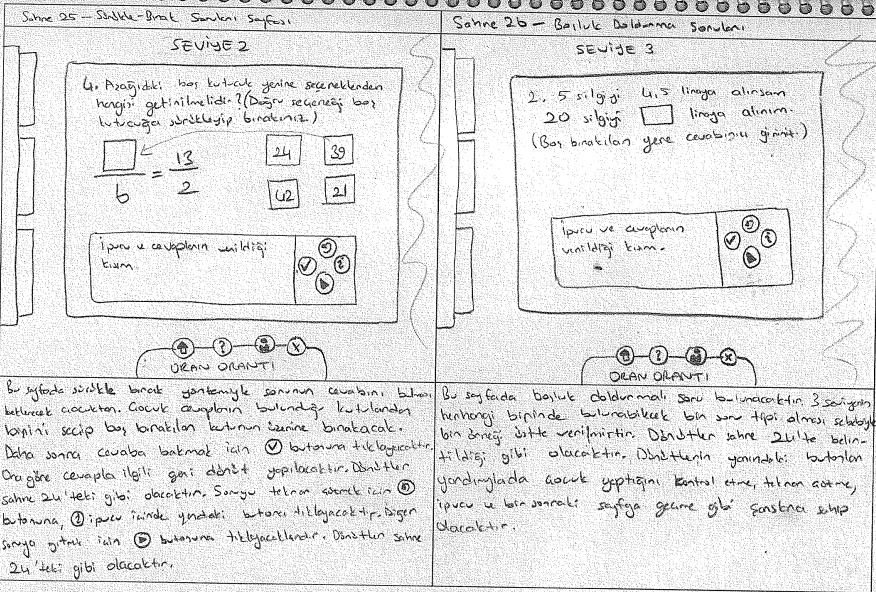 Sahne 25 - Sürükle-Bırak Soruları Sayfası
SEVİYE 2
4. Aşağıdaki boş kutucuk yerine seçeneklerden
hangisi getirilmelidir? (Doğru seçeneği boş
kutucuğa sürükleyip bırakınız.)
6 = 13/2
24 39
42 21
İpucu ve cevapların verildiği
kısım
? X
ORAN ORANTI
Bu sayfada sürükle bırak yöntemiyle sorunun cevabını bulması
beklenecek çocuktan. Çocuk cevapların bulunduğu kutulardan
birini seçip boş bırakılan kutunun üzerine bırakacak.
Daha sonra cevaba bakmak için butonuna tıklayacaktır.
Ona göre cevapla ilgili geri dönüt yapılacaktır. Dönütler
sahne 24'teki gibi olacaktır. Soruyu tekrar için
butonuna, i ipucu içinde yandaki butona tıklayacaktır. Diğer
soruya gitmek için butonuna tıklayacaklardır. Dönütler sahne
24'teki gibi olacaktır.
Sahne 26 - Boşluk Doldurma Soruları
SEVİYE 3
2. 5 silgiyi 4.5 liraya alırsam
20 silgiyi liraya alırım.
(Boş bırakılan yere cevabınızı giriniz.)
İpucu ve cevapların
verildiği kısım.
? X
ORAN ORANTI
Bu sayfada boşluk doldurmalı soru bulunacaktır. 3 seviyenin
herhangi birinde bulunabilecek bir soru tipi olması sebebiyle
bir örneği üstte verilmiştir. Dönütler sahne 24'te belir-
tildiği gibi olacaktır. Dönütlerin yanındaki butonlar
yardımıylada çocuk yaptığını kontrol etme, tekrar
ipucu ve bir sonraki sayfaya geçme gibi şansına sahip
olacaktır.